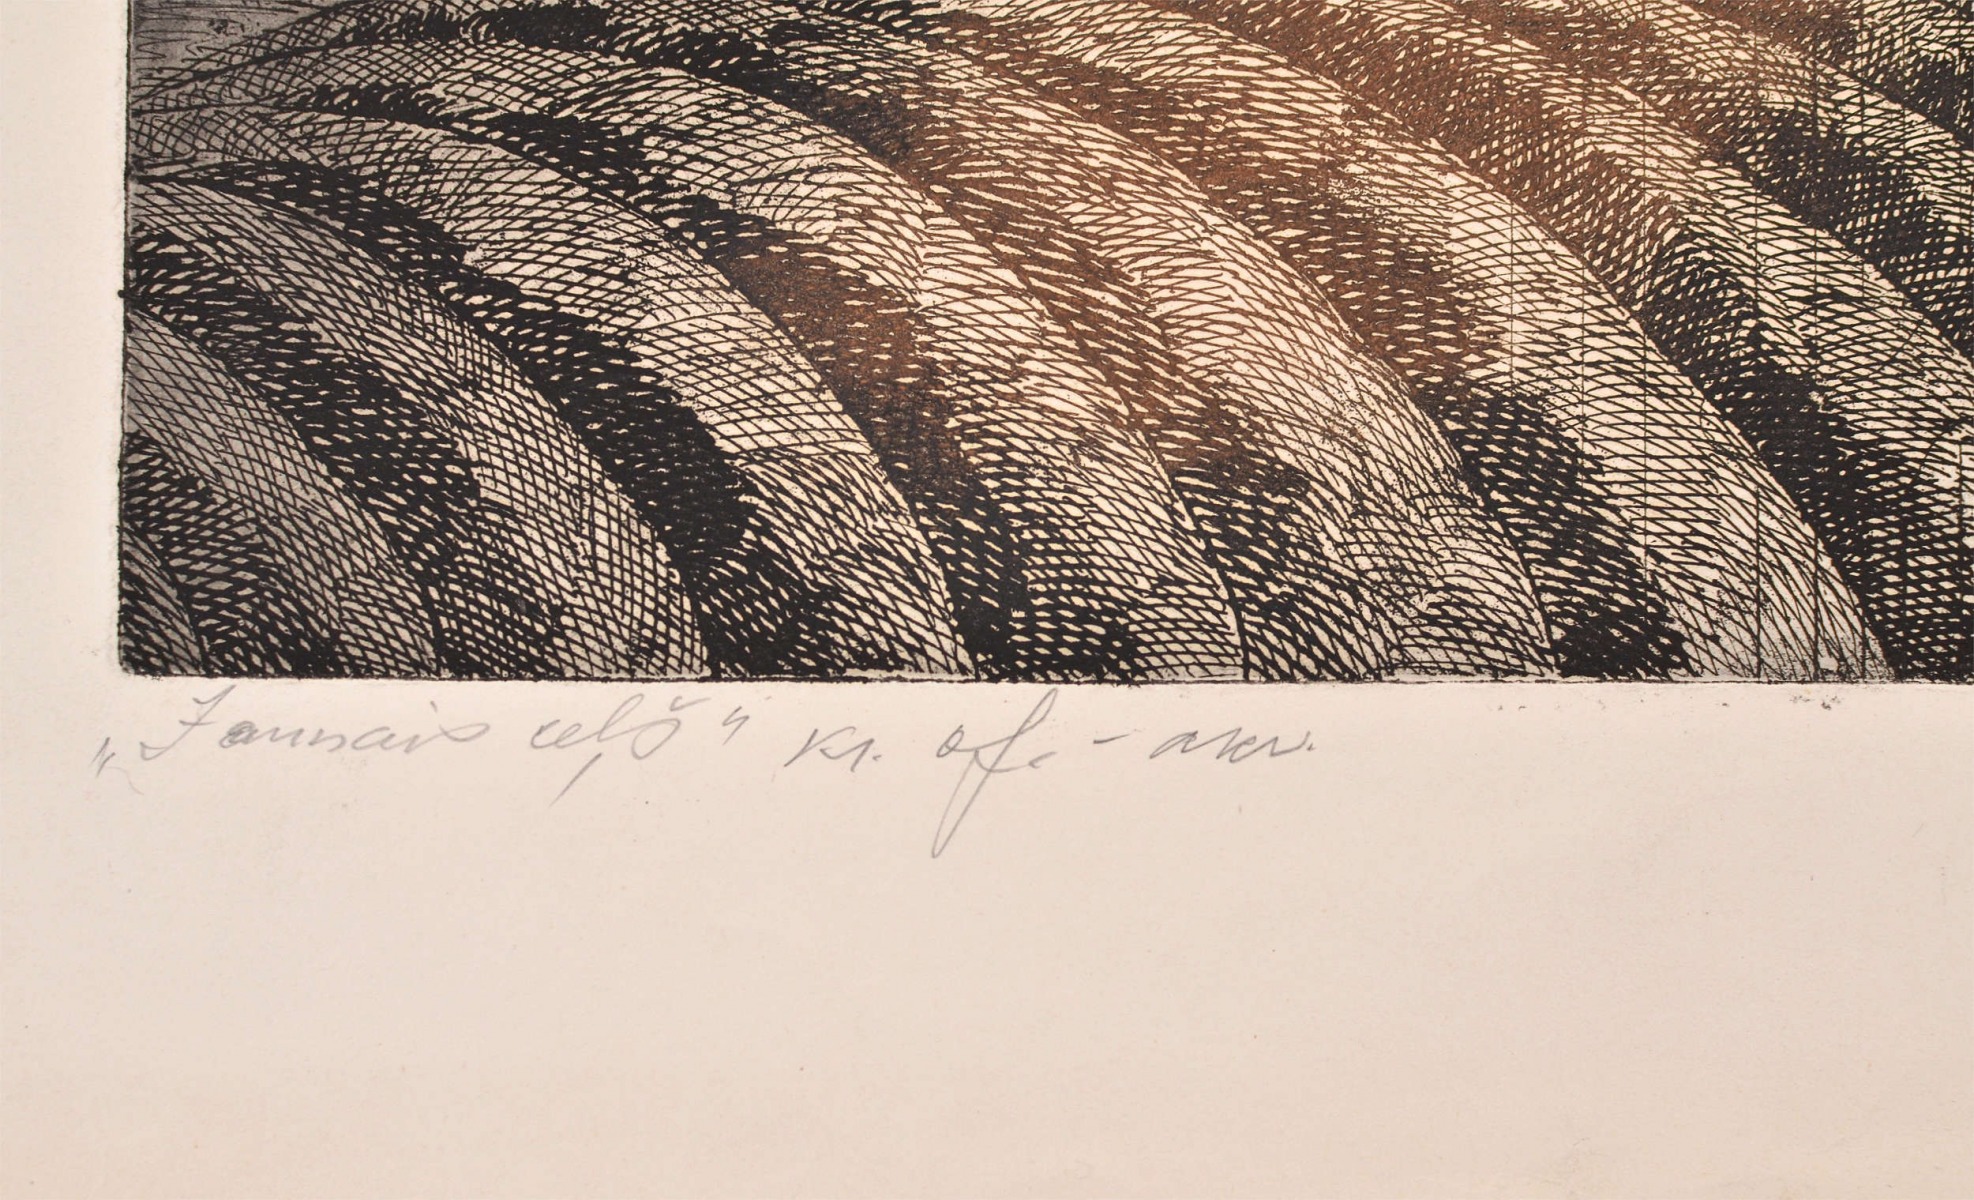 „Jaunais ceļš" kr. of. - akv.